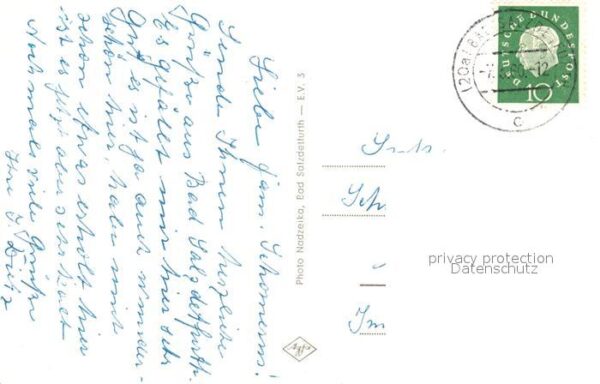 Liebe Fam. Schomers!
Sende Ihnen herzliche
Grüße aus Bad Salzdetfurth.
Es gefällt mir hier sehr
Gut es ist ja auch wunder-
schön hier, habe mich
schon etwas erholt hier
ist es jetzt aber sehr kalt
Nochmals viele Grüße
Ihre J.
Photo Nadzeika, Bad Salzdetfurth — E.V. 3
DEUTSCHE BUNDESPOST
10
(20a) BAD
12
c
Sch
Im
privacy protection
Datenschutz